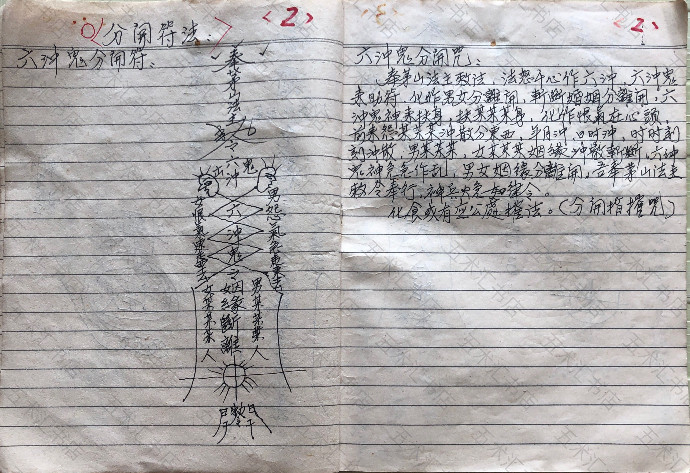 <2>
分開符法.
六沖鬼分開符.
奉茅山法主
令六沖
鬼
六沖鬼
女恨氣
男怨氣
之姻緣斷離
女某某某人
男某某某人
<2>
六沖鬼分開咒.
奉茅山法主敕法, 法怒千心作六沖, 六沖鬼
來助符, 化作男女分離開, 斬斷婚姻分離開, 六
沖鬼神來扶身, 扶某某某身, 化作恨氣在心頭,
前來怨某某某沖散分東西, 年月沖, 日時沖, 時時刻
刻沖散, 男某某某, 女某某某姻緣沖散斬斷, 六沖
鬼神急急作乱, 男女姻緣分離開, 吾奉茅山法主
敕令奉行, 神兵火急如律令.
化食或有应公處撞法。(分開指撞咒)